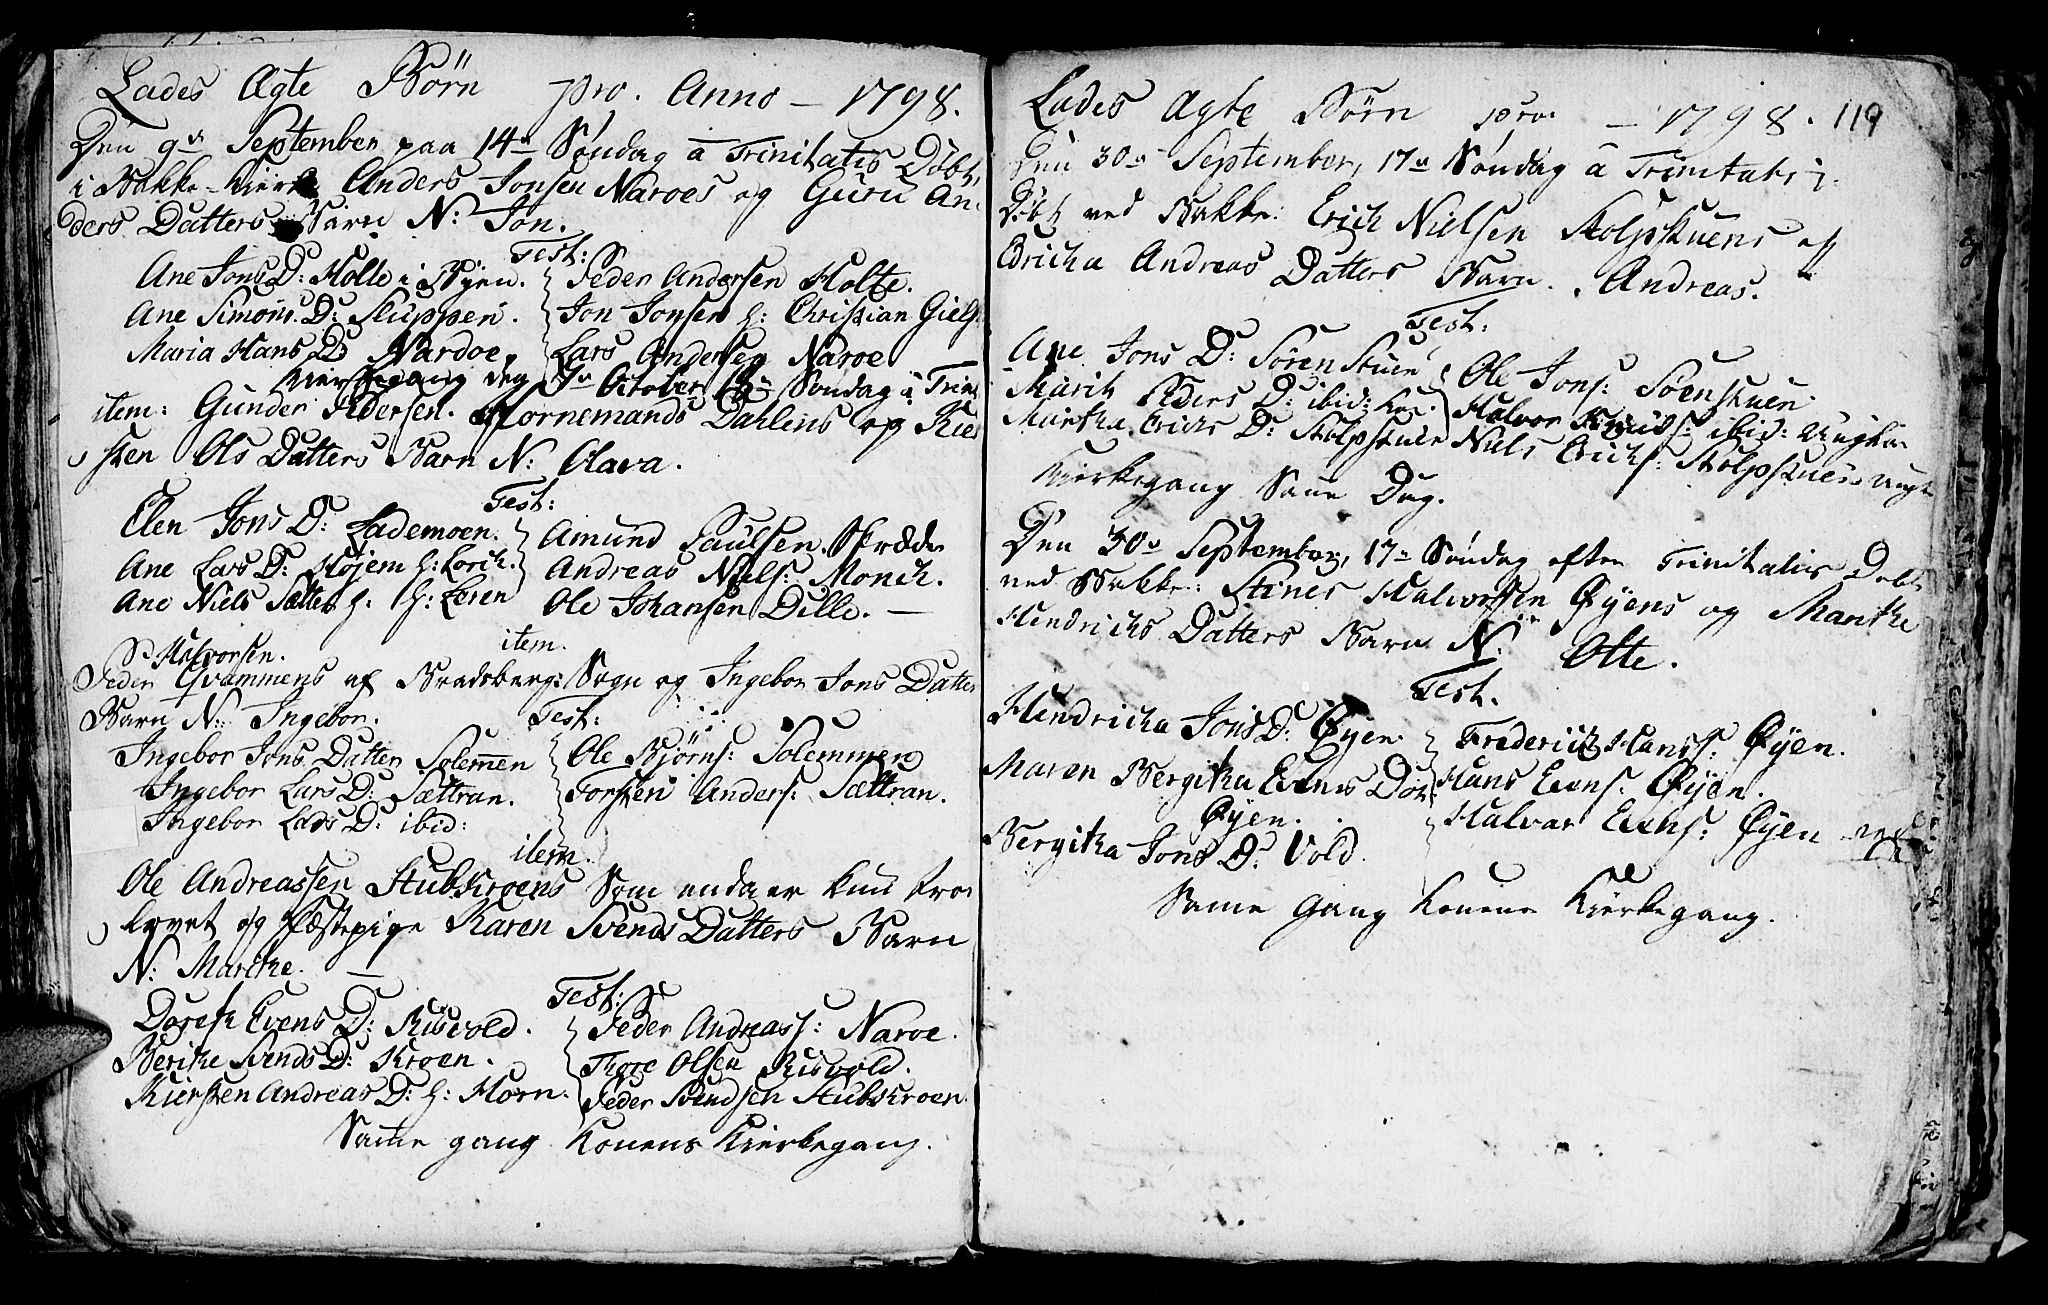 Lades Ægte Børn pro. Anno - 1798.
Den 9de September paa 14de Søndag a Trinitatis Døbt
i Bakke-Kierke Anders Jonsen Naroes og Guru An-
ders Datters Barn N: Jon.
Test:
Ane Jons D: Holte i Byen. Peder Andersen Holte.
Ane Simons D: Sluppen. Jon Jonsen h: Christian Giels
Maria Hans D: Nardoe. Lars Andersen Naroe
Kierkegang den 7de October 18de Søndag a Trin
item: Gunder Pedersen. Hornemands Dahlens og Kier
sten Ols Datters Barn N: Olava.
Test:
Elen Jons D: Lademoen. Amund Paulsen. Skrædder
Ane Lars D: Højem h: Lorch. Andreas Niels: Monch.
Ane Niels Sætter h: h: Leren Ole Johansen Dille. -
item.
Halvorsen.
Peder Qvammens af Bradsberg: Sogn og Ingebor Jons Datter
Barn N: Ingebor. Test:
Ingebor Jons Datter Solemen Ole Bjørns: Solemmen
Ingebor Lars D: Sættran. Torsten Anders: Sættran.
Ingebor Lads D: ibid:
item.
Ole Andreassen Stubskroens Som enda er kun tro-
lovet og Fæstepige Karen Svends Datters Barn
N: Marithe. -
Test:
Doreth Evens D: Risvold. Peder Andreass: Naroe.
Berithe Svends D: Kroen. Thore Olsen Risvold.
Kiersten Andreas D: h: Horn. Peder Svendsen Stubskroen
Same gang Konens Kierkegang.
Lades Ægte Børn pro. - 1798. 119
Den 30de September, 17de Søndag a Trinitatis
Døbt ved Bakke: Erich Nielsen Stolpstuens og
Edricha Andreas Datters Barn. Andreas.
Test:
Ane Jons D: Sørenstuen Ole Jons: Soenstuen.
Marit Peders D: ibid: Halvor Knuds: ibid: Ungkar
Martha Erichs D: Stolpstuen Niels Erichs: Stolpstuens Ungk
Kierkegang Same Dag.
Den 30de September, 17de Søndag efter Trinitatis Døbt
ved Bakke: Stines Halvorsen Øyens og Marithe
Hendrichs Datters Barn N: Otte.
Test.
Hendricha Jons D: Øyen. Frederich Hanss: Øyen.
Maren Bergitha Evens Dot: Hans Evens: Øyen.
Øyen. Halvor Evens: Øyen
Bergitha Jons D: Vold.
Same Gang Konens Kierkegang.